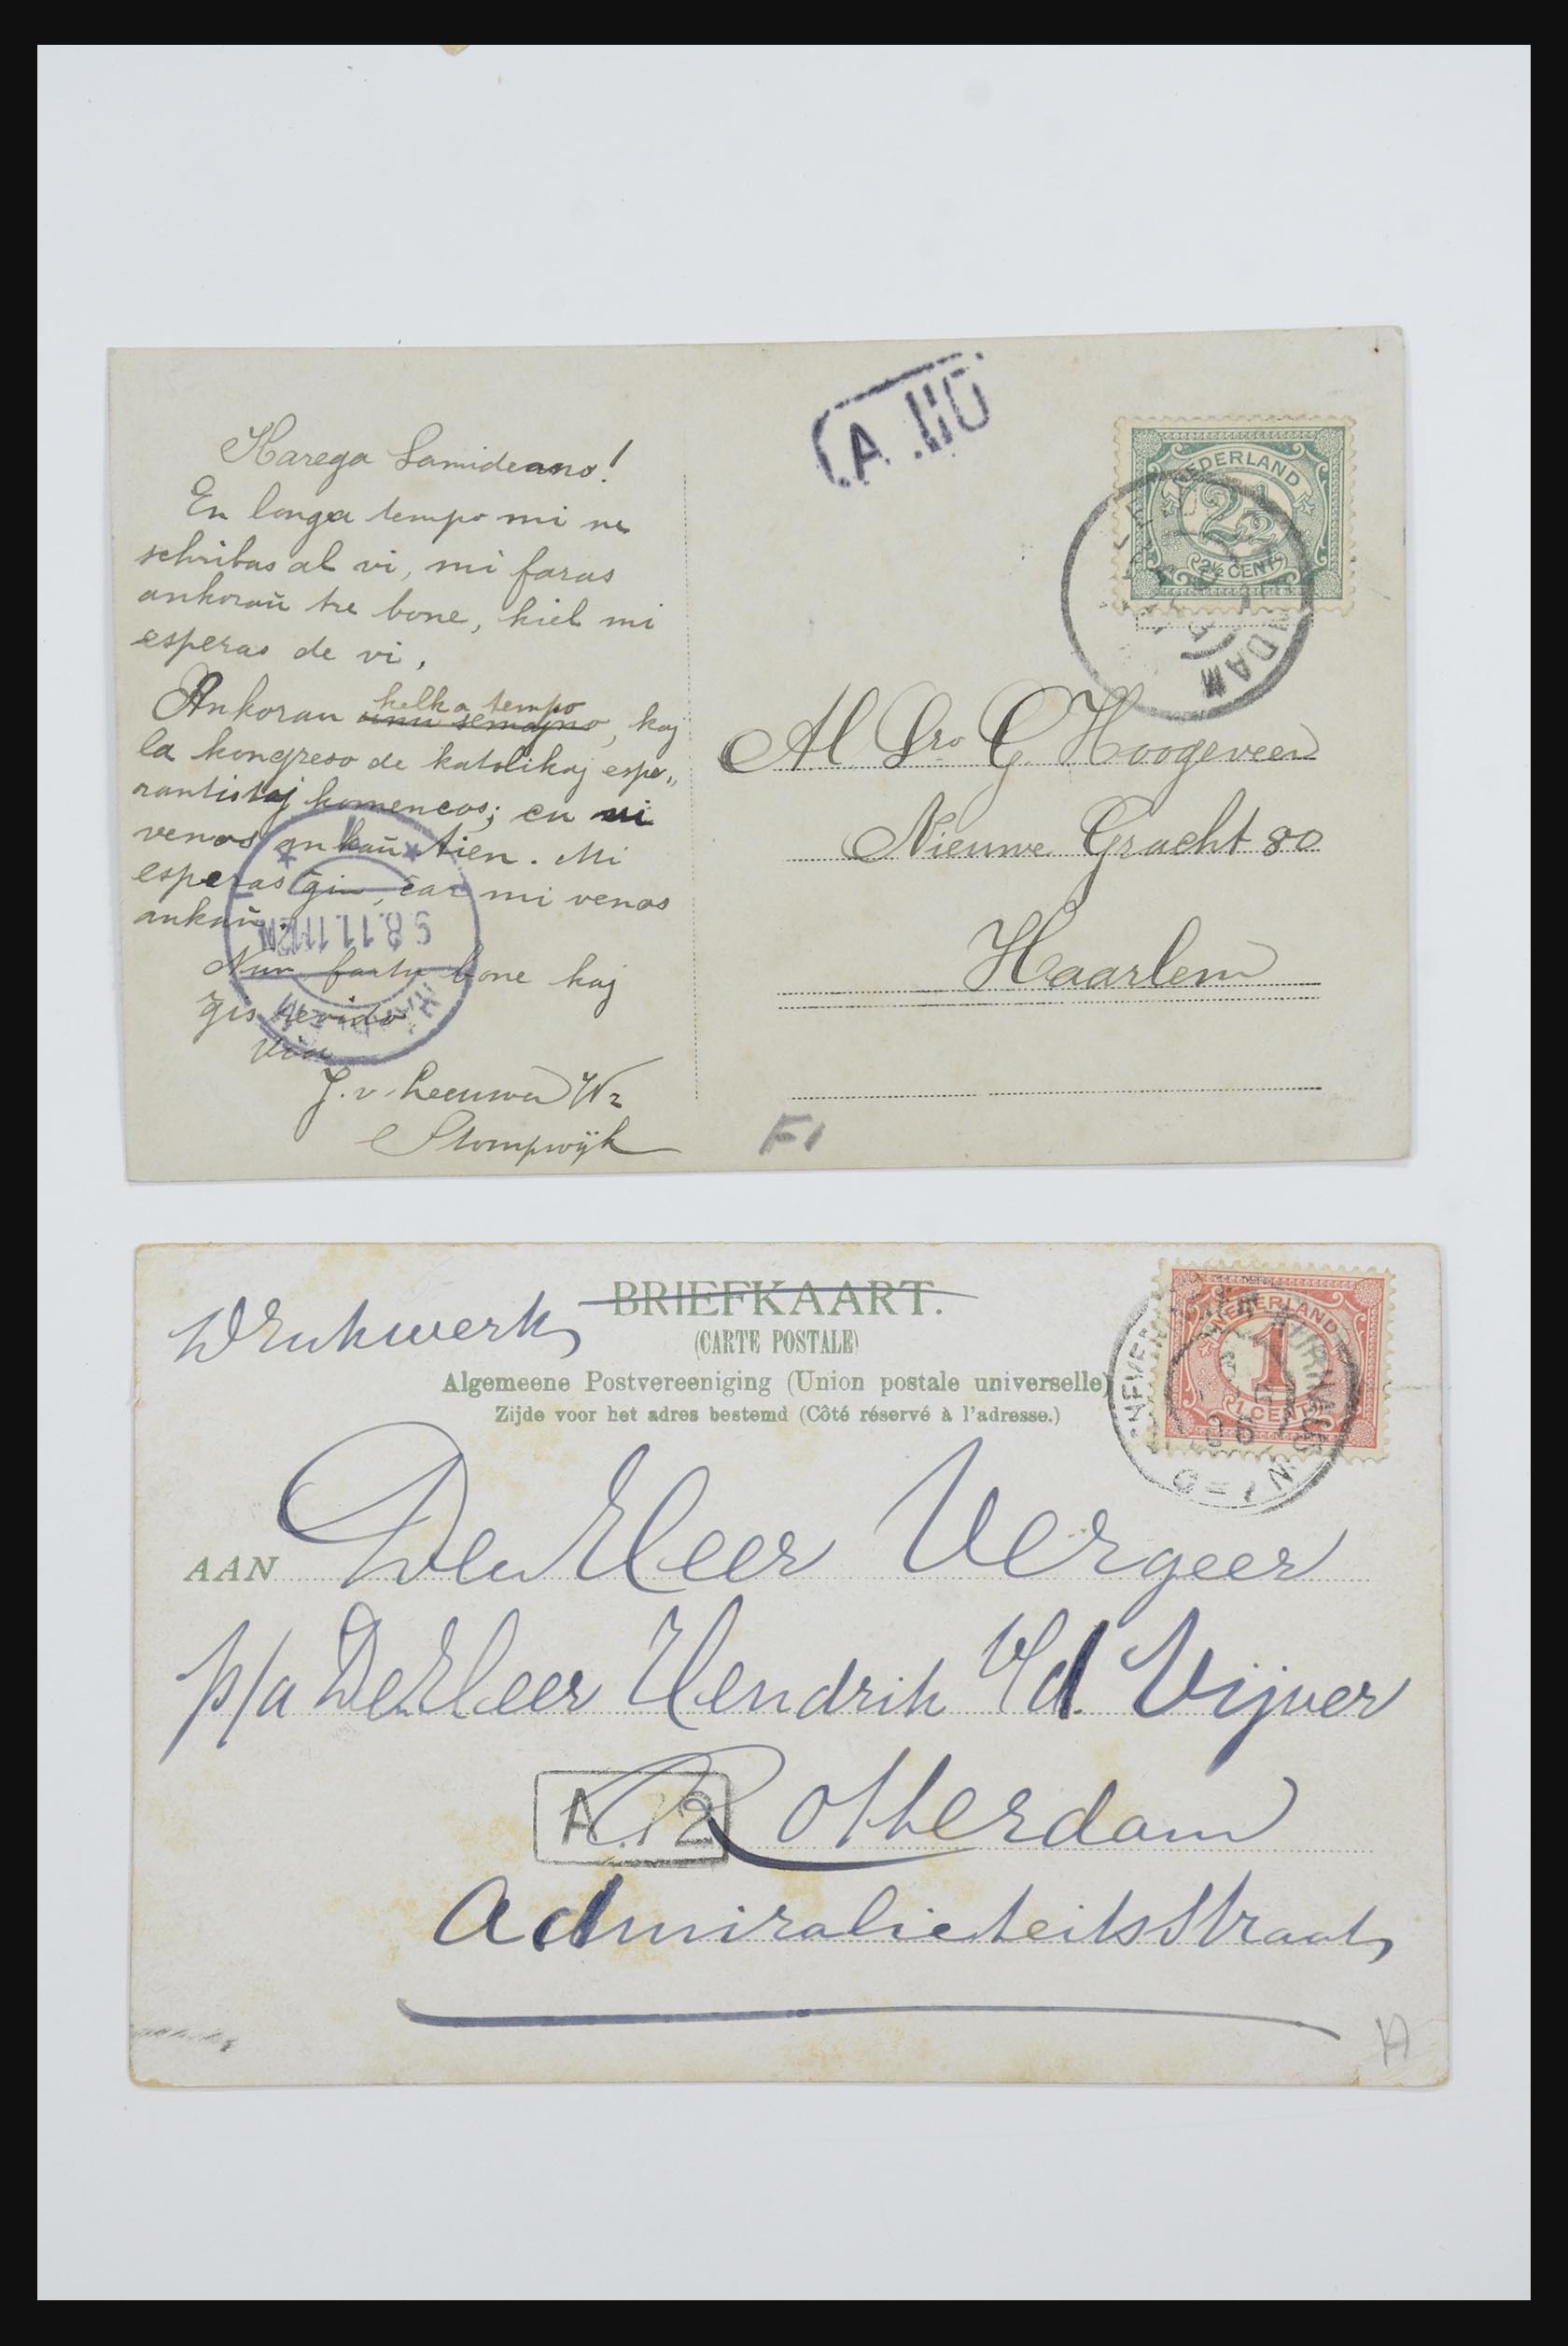 Karega Samideano!
En longa tempo mi ne
schribas al vi, mi faras
ankoraŭ tre bone, kiel mi
esperas de vi,
Ankorau kelka tempo
unu semajno, kaj
la kongreso de katolikaj espe„
rantistoj komencos; cu vi
venos ankaŭ tien. Mi
esperas ĝin, ĉar mi venos
ankaŭ.
Nun fartu bone kaj
ĝis revido
Via
J. v. Leeuwen Wz
Stompwijk
A
NEDERLAND
2½
2½ CENT
DAM
Al Sro G. Hoogeveen
Nieuwe Gracht 80
Haarlem
9 8.11.11-12N
F1
Drukwerk
BRIEFKAART.
(CARTE POSTALE)
Algemeene Postvereeniging (Union postale universelle)
Zijde voor het adres bestemd (Côté réservé à l'adresse.)
NEDERLAND
1
1 CENT
AAN Den Heer Vergeer
p/a De Heer Hendrik v/d. Vijver
A.12
Rotterdam
Admiraliteitsstraat